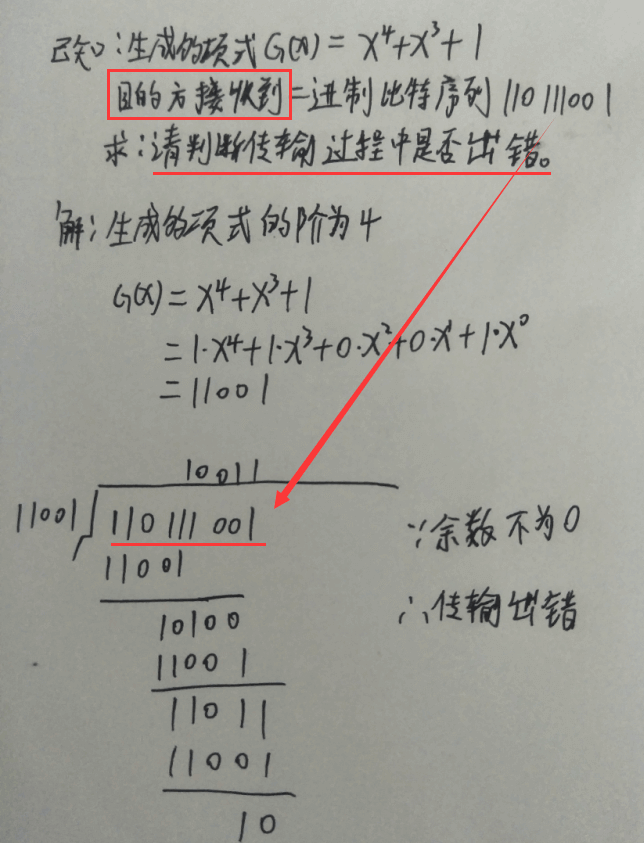 已知:生成的项式G(x)=x⁴+x³+1
目的方接收到二进制比特序列110111001
求:请判断传输过程中是否出错。
解:生成的项式的阶为4
G(x)=x⁴+x³+1
=1·x⁴+1·x³+0·x²+0·x¹+1·x⁰
=11001
10011
11001 110111001
11001
10100
11001
11011
11001
10
∵余数不为0
∴传输出错